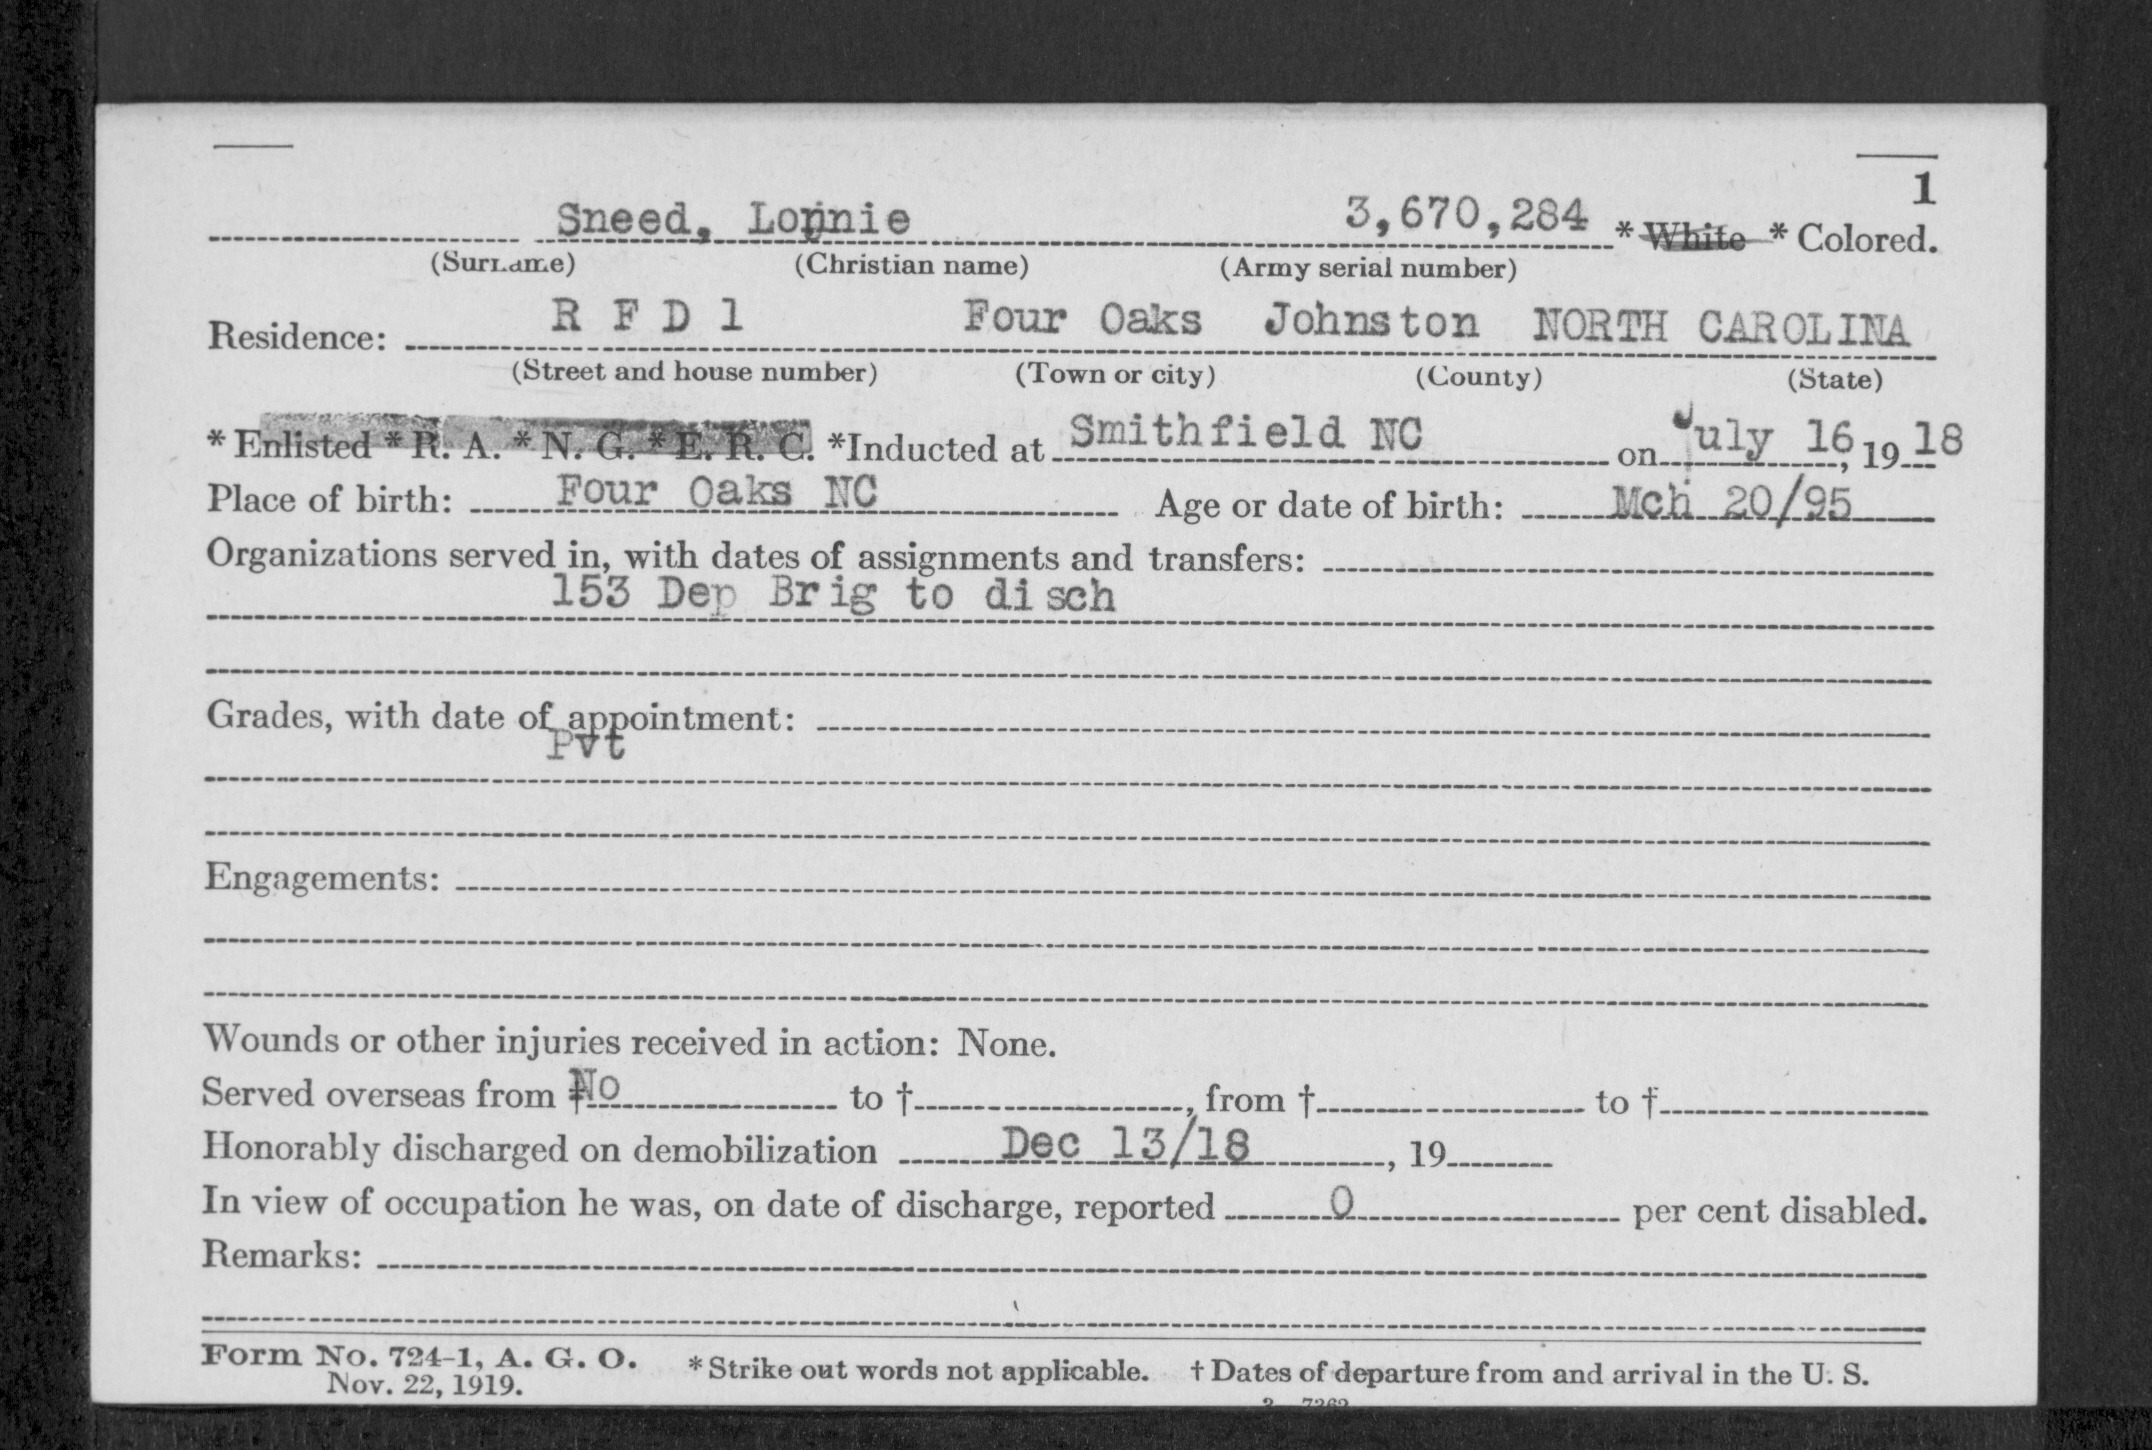 1
Sneed, Lonnie 3,670,284 * White * Colored.
(Surname) (Christian name) (Army serial number)
Residence: R F D 1 Four Oaks Johnston NORTH CAROLINA
(Street and house number) (Town or city) (County) (State)
* Enlisted * R. A. * N. G. * E. R. C. *Inducted at Smithfield NC on July 16, 19 18
Place of birth: Four Oaks NC Age or date of birth: Mch 20/95
Organizations served in, with dates of assignments and transfers:
153 Dep Brig to disch
Grades, with date of appointment:
Pvt
Engagements:
Wounds or other injuries received in action: None.
Served overseas from † No to †, from † to †
Honorably discharged on demobilization Dec 13/18, 19
In view of occupation he was, on date of discharge, reported 0 per cent disabled.
Remarks:
Form No. 724-1, A. G. O. * Strike out words not applicable. † Dates of departure from and arrival in the U. S.
Nov. 22, 1919.